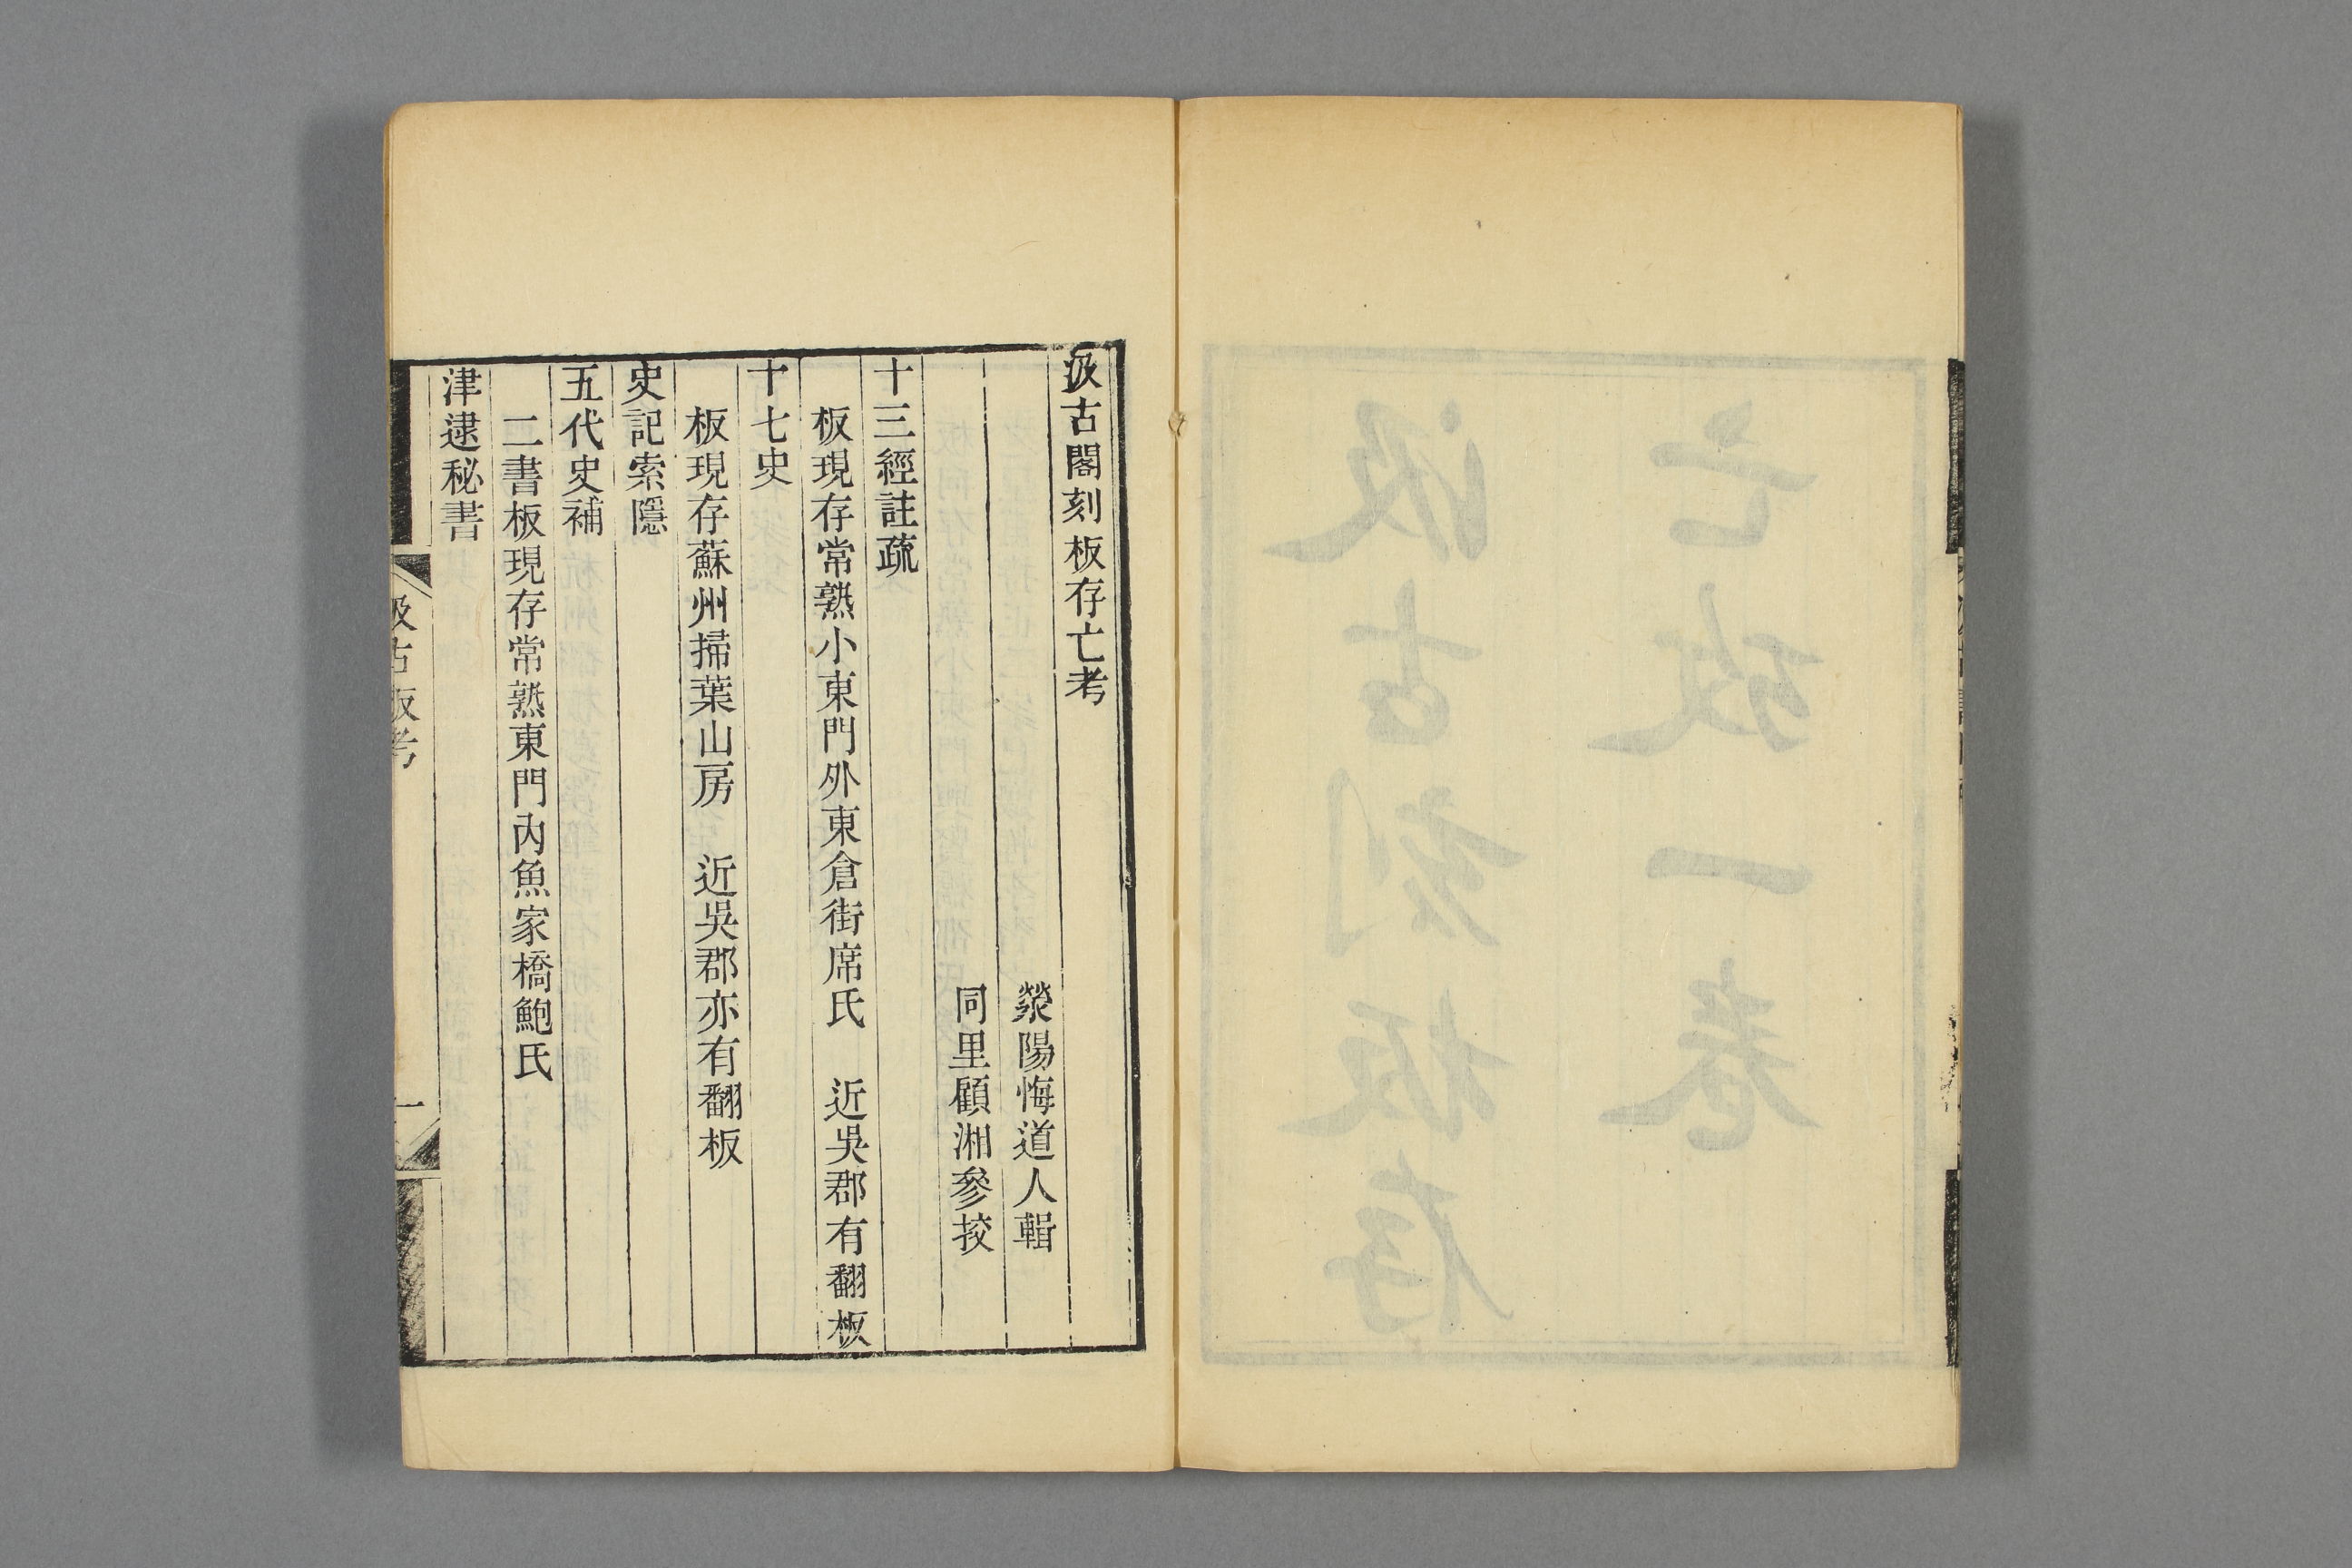 汲古閣刻板存亡考
滎陽悔道人輯
同里顧湘參挍
十三經註疏
板現存常熟小東門外東倉街席氏　近吳郡有翻板
十七史
板現存蘇州掃葉山房　近吳郡亦有翻板
史記索隱
五代史補
二書板現存常熟東門內魚家橋鮑氏
津逮秘書
汲古板考
一
汲古刻板存
亡攷一卷